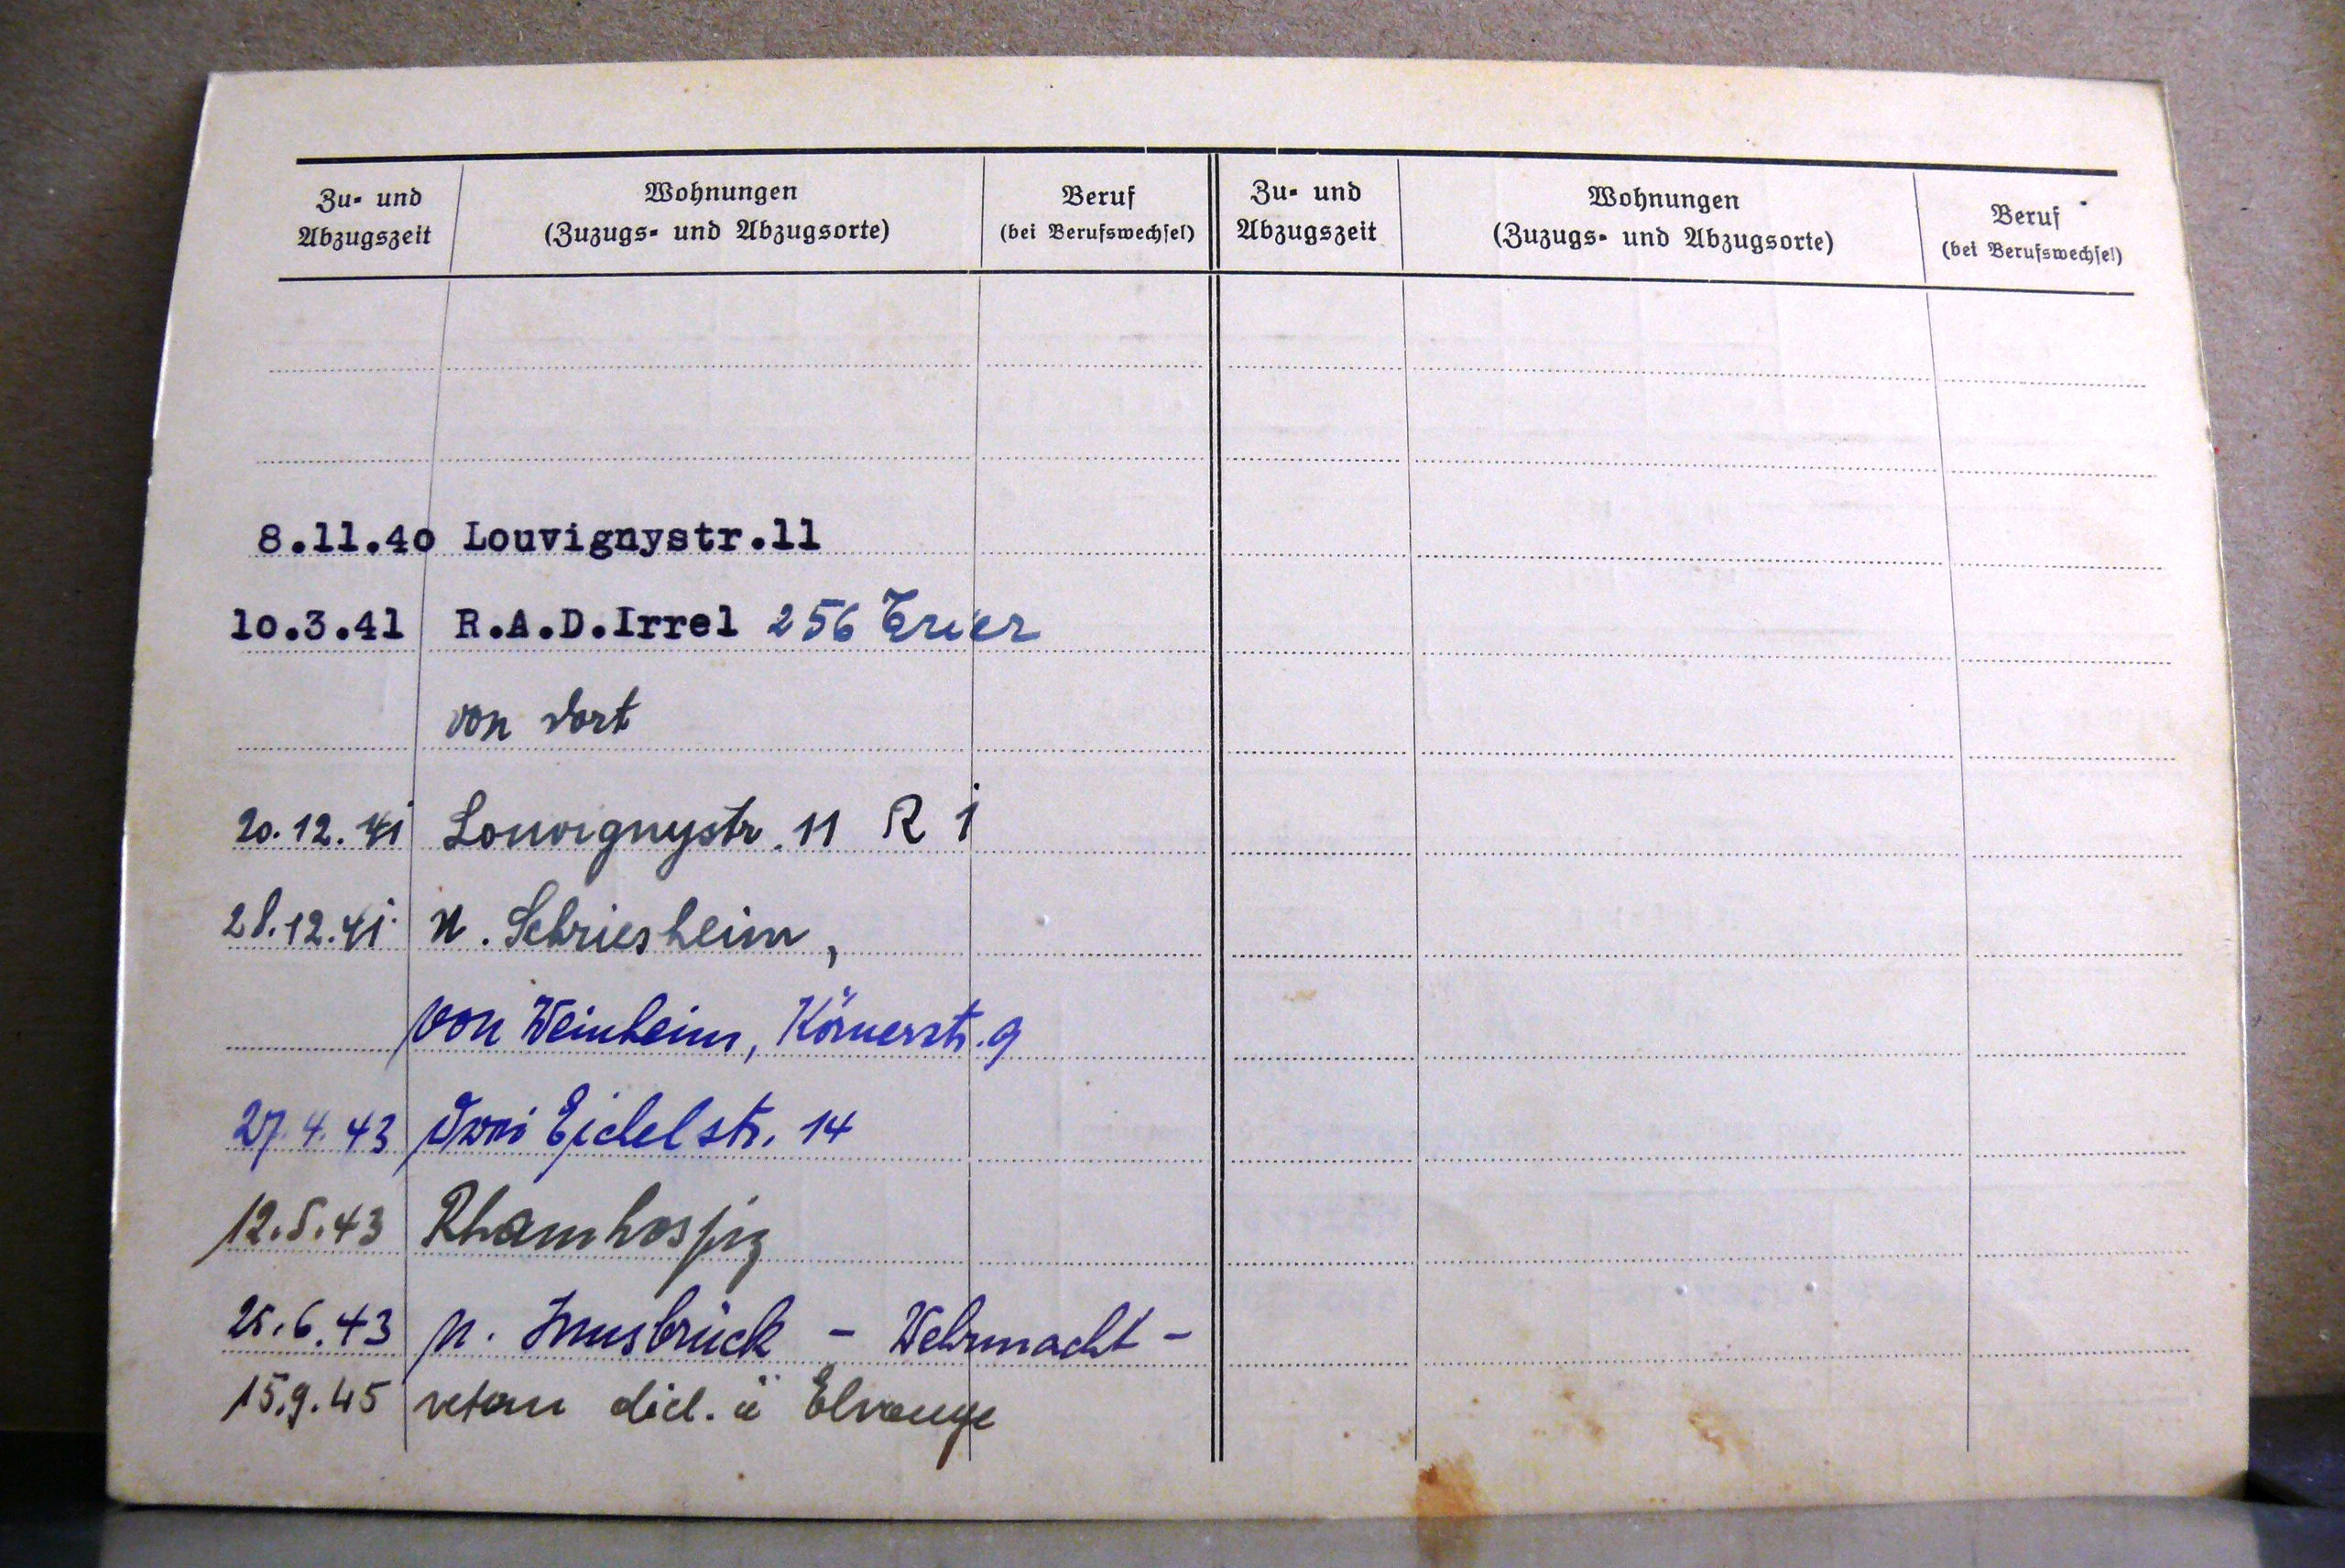 Zu- und Abzugszeit
Wohnungen (Zuzugs- und Abzugsorte)
Beruf (bei Berufswechsel)
Zu- und Abzugszeit
Wohnungen (Zuzugs- und Abzugsorte)
Beruf (bei Berufswechsel)
8.11.40 Louvignystr.11
10.3.41 R.A.D.Irrel 256 Trier
von dort
20.12.41 Louvignystr. 11 R 1
28.12.41. n. Schriesheim,
von Weinheim, Körnerstr. 9
27.4.43 Drei Eichelstr. 14
12.5.43 Rhamhospiz
25.6.43 n. Innsbruck - Wehrmacht -
15.9.45 retour décl. à Elvange